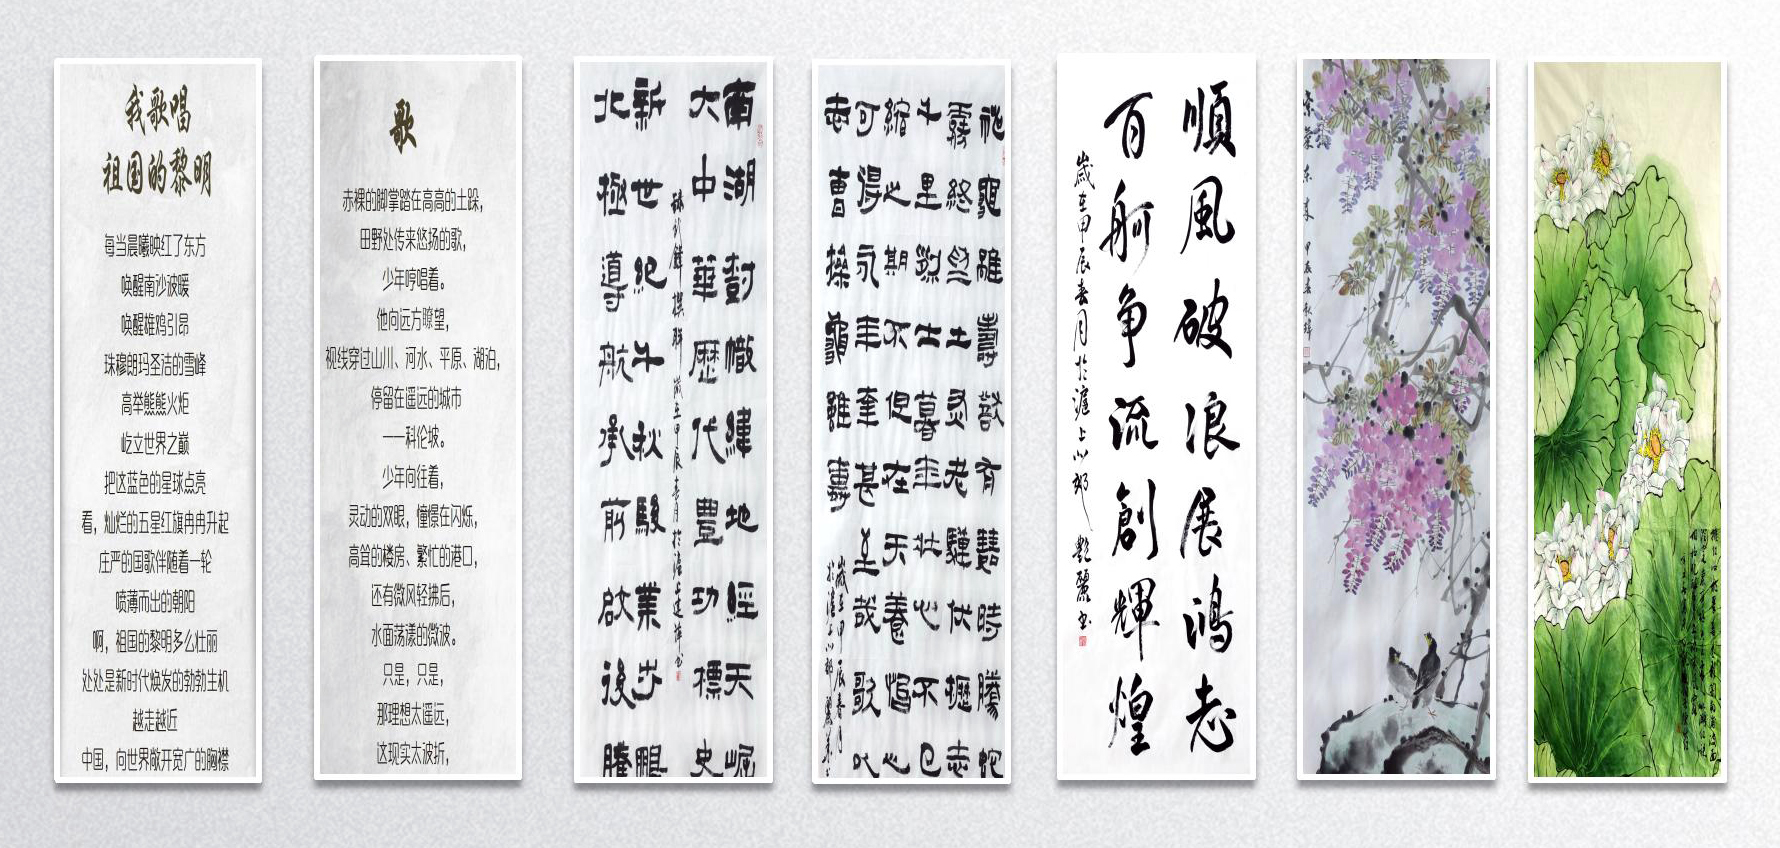 我歌唱
祖国的黎明
每当晨曦映红了东方
唤醒南沙波暖
唤醒雄鸡引昂
珠穆朗玛圣洁的雪峰
高举熊熊火炬
屹立世界之巅
把这蓝色的星球点亮
看，灿烂的五星红旗冉冉升起
庄严的国歌伴随着一轮
喷薄而出的朝阳
啊，祖国的黎明多么壮丽
处处是新时代焕发的勃勃生机
越走越近
中国，向世界敞开宽广的胸襟
歌
赤裸的脚掌踏在高高的土垛，
田野处传来悠扬的歌，
少年哼唱着。
他向远方瞭望，
视线穿过山川、河水、平原、湖泊，
停留在遥远的城市
——科伦坡。
少年向往着，
灵动的双眼，憧憬在闪烁，
高耸的楼房、繁忙的港口，
还有微风轻拂后，
水面荡漾的微波。
只是，只是，
那理想太遥远，
这现实太波折，
南湖封幟肆地經天崛
大中華歷代豐功標史
新世紀千秋駿業步鵬
北極導航承前啟後騰
神龜雖壽猷有竟時騰蛇
霧終為土灰老驥伏櫪志
千里烈士暮年壯心不已
縮之期不但在天養怡之
可得永年幸甚至哉歌以
志曹操龜雖壽
順風破浪展鴻志
百舸争流創輝煌
歲在甲辰春月於滬上小郡 艷麗书
紫氣东来 甲辰春